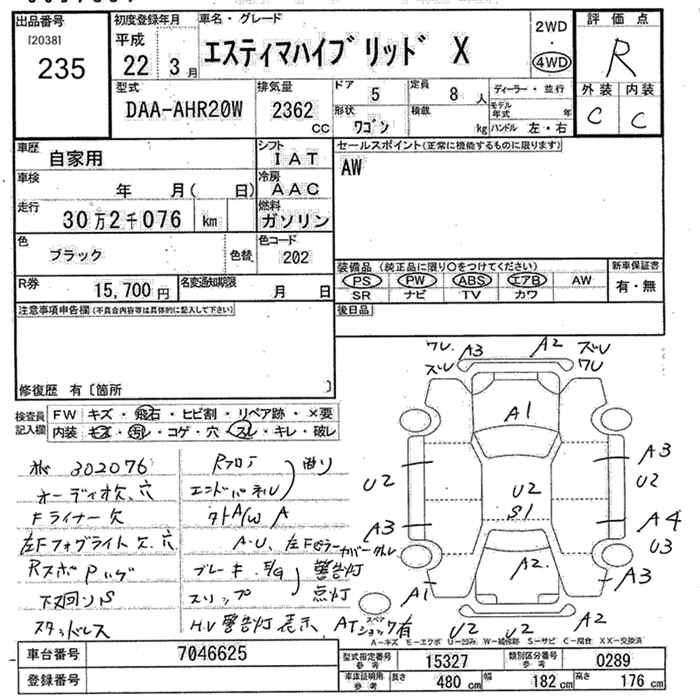 出品番号
[2038]
235
初度登録年月
平成
22 3月
車名・グレード
エスティマハイブリッド X
2WD
・
4WD
評価点
R
外装 内装
C C
型式
DAA-AHR20W
排気量
2362
CC
ドア
5
定員
8 人
形状
ワゴン
積載
kg
ディーラー・並行
モデル年式 年
ハンドル 左・右
車歴
自家用
シフト
IAT
車検
年 月( 日)
冷房
AAC
走行
30万2千076 km
燃料
ガソリン
色
ブラック
色替
色コード
202
R券
15,700円
名変通知期限
月 日
セールスポイント(正常に機能するものに限ります)
AW
装備品(純正品に限り○をつけてください)
PS PW ABS エアB AW
SR ナビ TV カワ
新車保証書
有・無
後日品
注意事項申告欄(不具合内容等は具体的に記入して下さい)
修復歴 有〔箇所 〕
検査員記入欄
FW キズ・飛石・ヒビ割・リペア跡・×要
内装 キズ・汚レ・コゲ・穴・スレ・キレ・破レ
302076
オーディオ欠、穴
Fライナー欠
左Fフォグライト欠、穴
下回りS
スタッドレス
Rフロア
エンドパネル
曲り
外A/W A
ブレーキ、E/G
スリップ
警告灯
点灯
HV警告灯表示
ATショック有
ワレ A3 A2 ズレ
ズレ ワレ
A1
U2 A3
U2
U2
S1
A3 A4
U3
A2
A1 A3
スペア
U2 U2 A2
A-キズ E-エクボ U-凹み W-補修跡 S-サビ C-腐食 XX-交換済
車台番号
7046625
登録番号
型式指定番号
参考
15327
類別区分番号
参考
0289
車庫証明用
参考
長さ
480 cm
幅
182 cm
高さ
176 cm